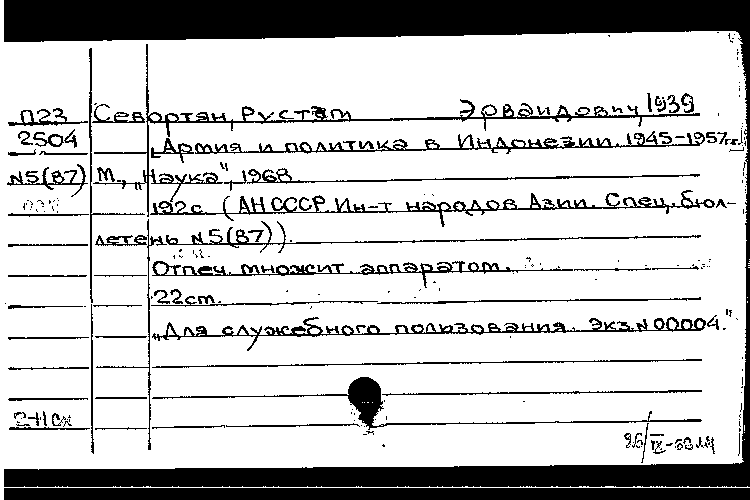 П23 Севортян, Рустам Эрвандович, 1939
2504 „Армия и политика в Индонезии. 1945-1957гг.
N5(87) М., „Наука", 1968.
192с. (АН СССР. Ин-т народов Азии. Спец. бюл-
летень N5(87)).
Отпеч. множит. аппаратом.
22cm.
„Для служебного пользования. Экз. N 00004."
2+1